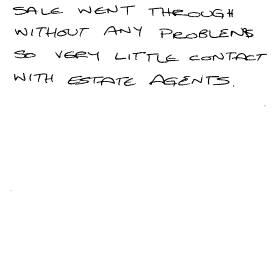 SALE WENT THROUGH
WITHOUT ANY PROBLEMS
SO VERY LITTLE CONTACT
WITH ESTATE AGENTS.